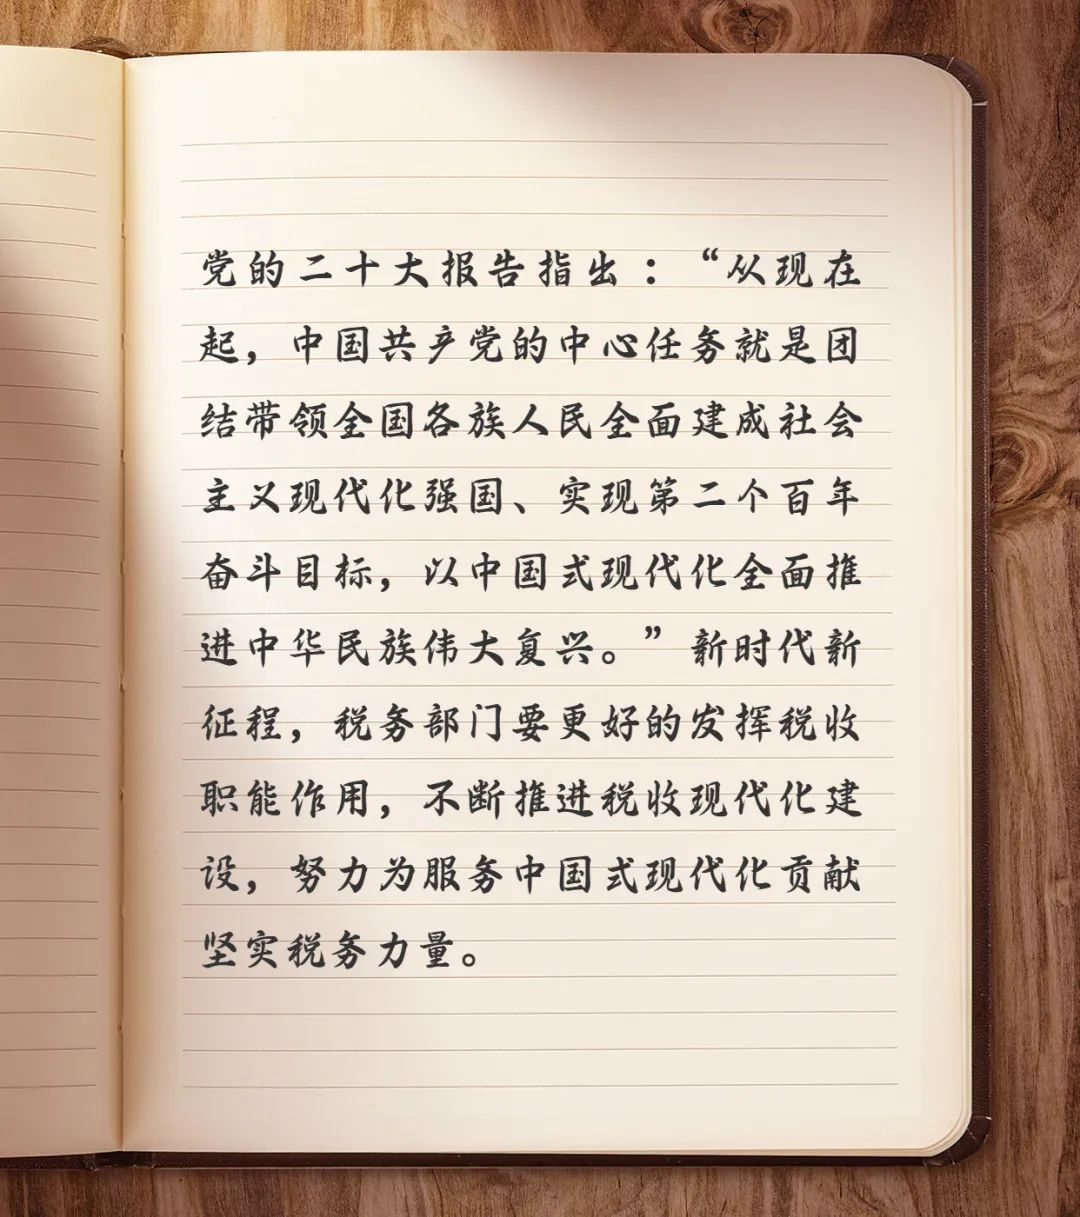 党的二十大报告指出：“从现在
起，中国共产党的中心任务就是团
结带领全国各族人民全面建成社会
主义现代化强国、实现第二个百年
奋斗目标，以中国式现代化全面推
进中华民族伟大复兴。”新时代新
征程，税务部门要更好的发挥税收
职能作用，不断推进税收现代化建
设，努力为服务中国式现代化贡献
坚实税务力量。